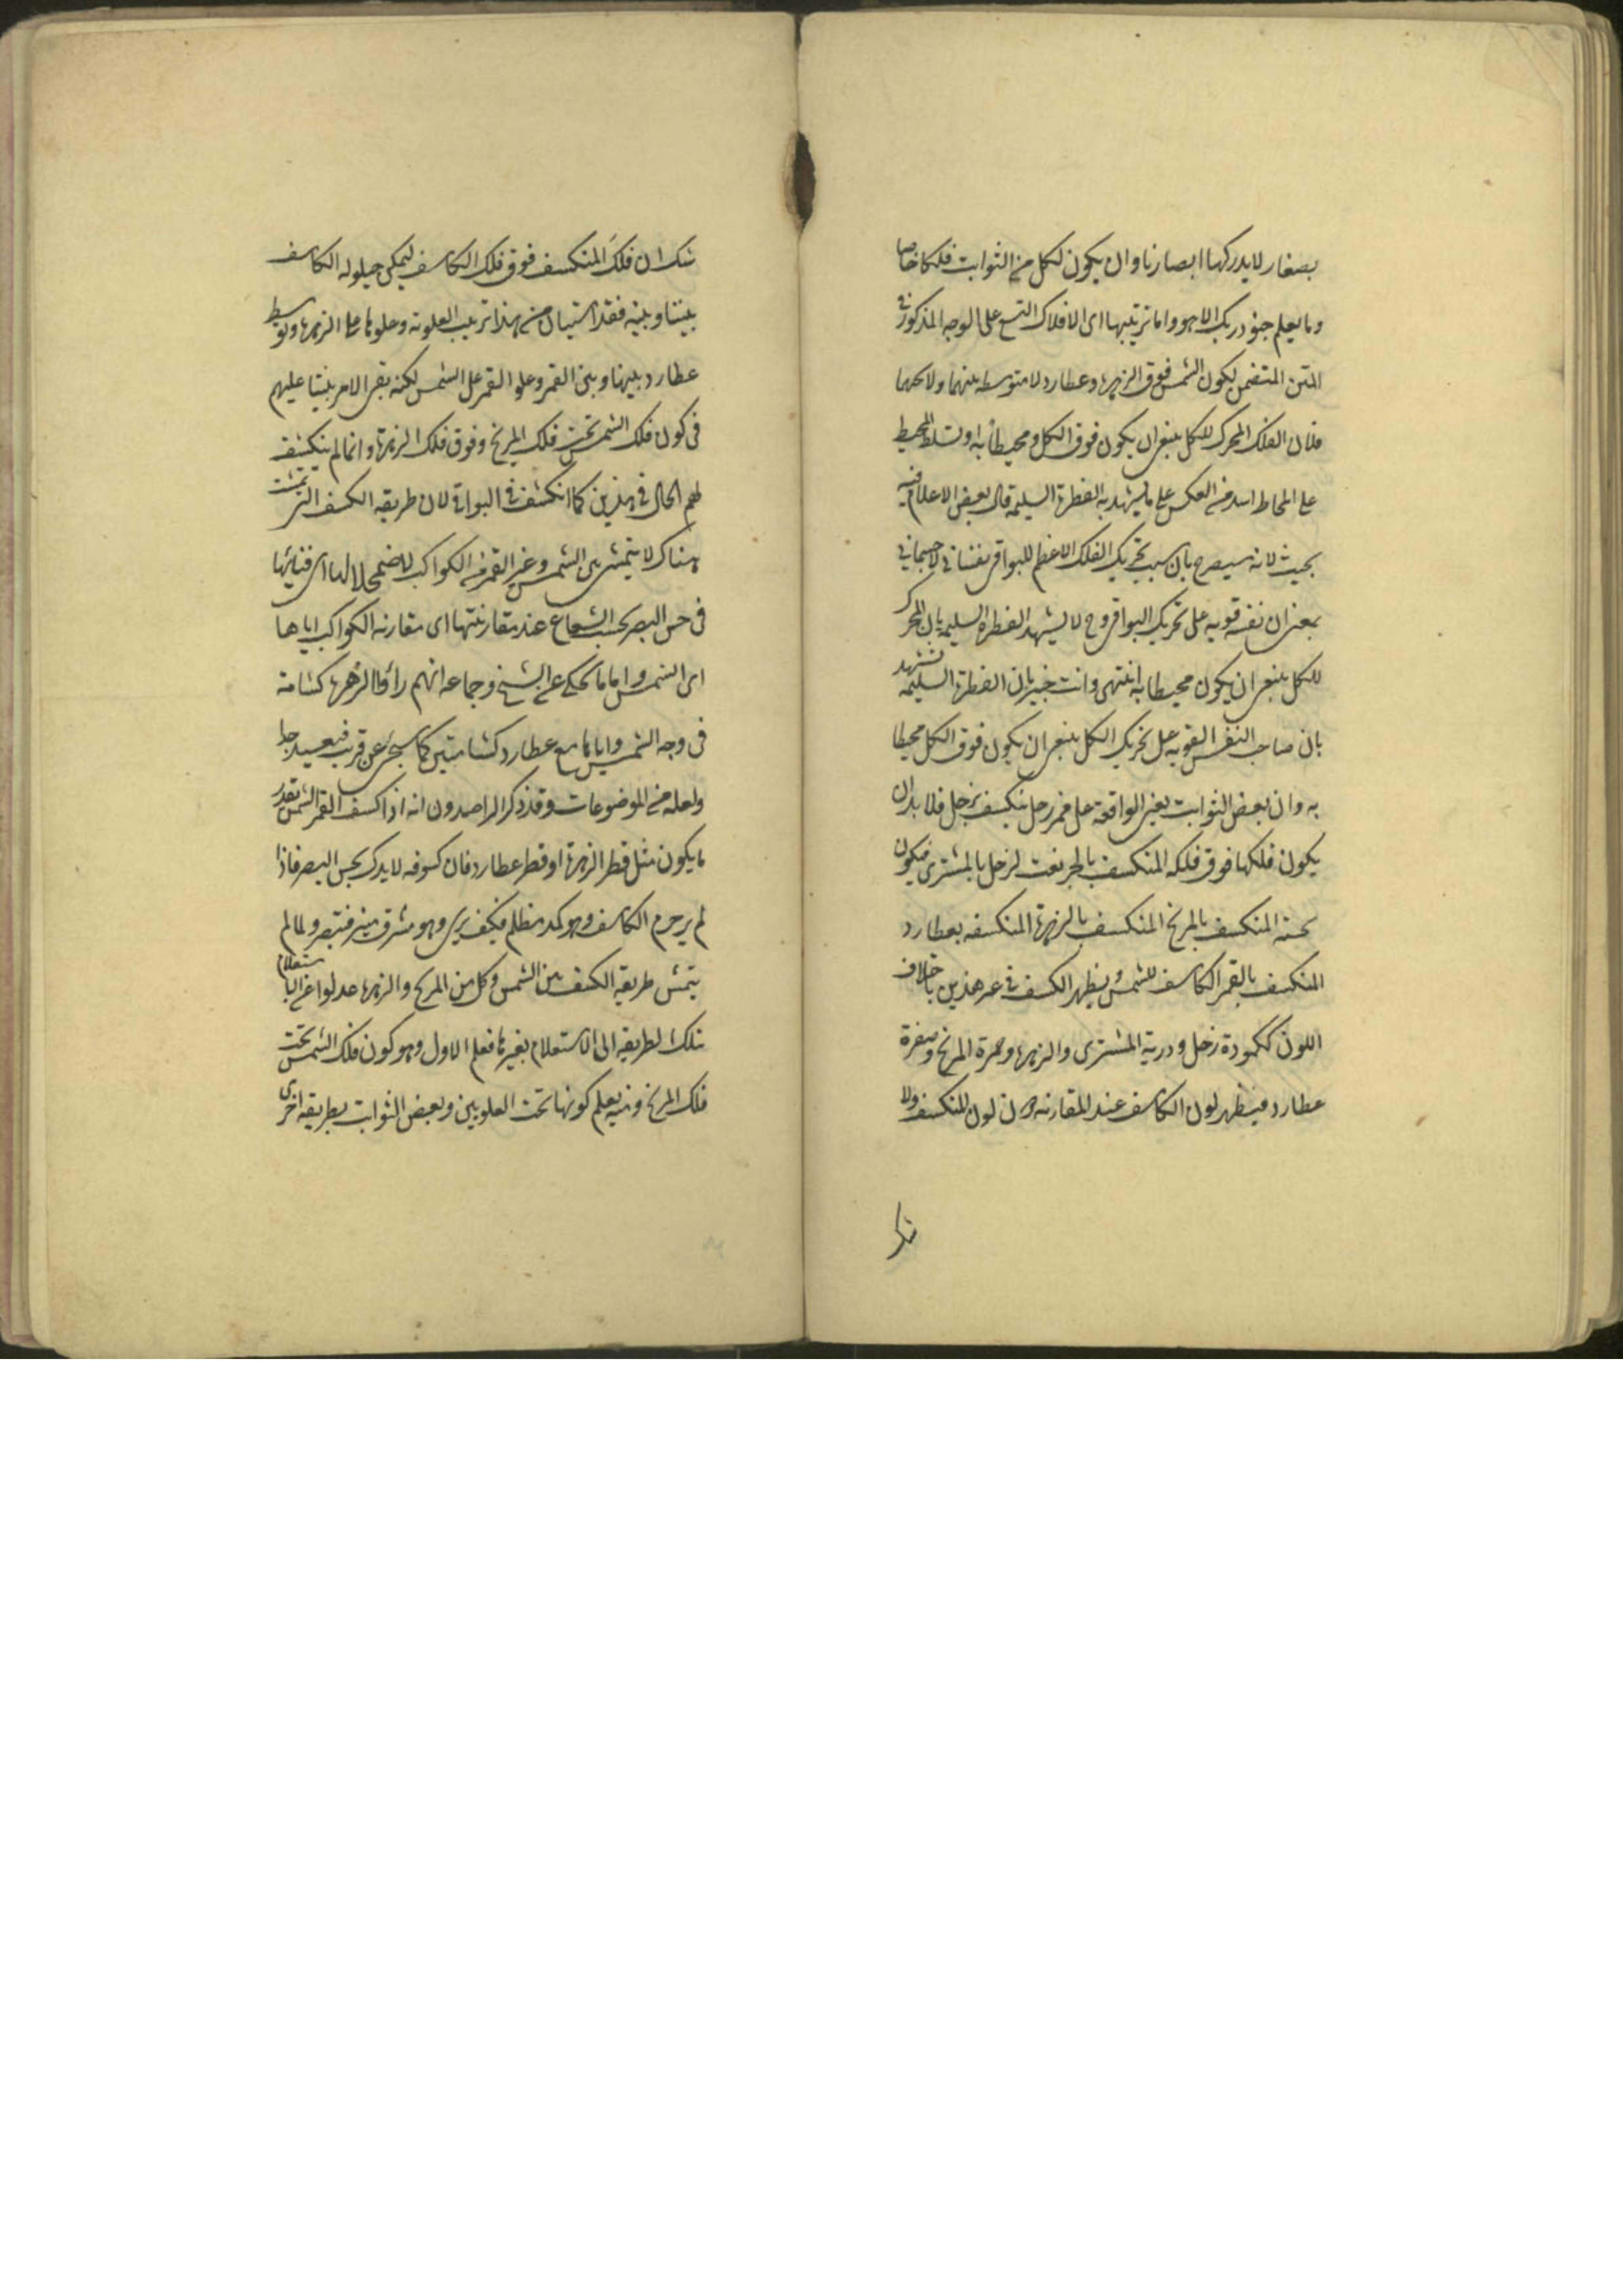 بصغار لا يدركها ابصارنا وان يكون لكل من الثوابت فلكا خاصا
وما يعلم جنود ربك الا هو واما ترتيبها اى الافلاك التسع على الوجه المذكور فى
المتن المتضمن لكون الشمس فوق الزهرة وعطارد لا متوسطه بينهما ولا تحتهما
فلان الفلك المحرك للكل ينبغى ان يكون فوق الكل ومحيطا به اذ تسلط المحيط
على المحاط اسد من العكس على ما يشهد به الفطرة السليمة قال بعض الاعلام فيه
بحيث لانه سيصرح بان سبب تحريك الفلك الاعظم للبواقى نفسانى لا جسمانى
بمعنى ان نفسه قويه على تحريك البواقى وح لا يشهد الفطرة السليمة بان المحرك
للكل ينبغى ان يكون محيطا به انتهى وانت خبير بان الفطرة السليمه تشهد
بان صاحب النفس القويه على تحريك الكل ينبغى ان يكون فوق الكل محيطا
به وان بعض الثوابت يعنى الواقعة على ممر زحل ينكسف بزحل فلا بد ان
يكون فلكها فوق فلكه المنكسف بالجر نعت لزحل بالمشترى فيكون
تحته المنكسف بالمريخ المنكسف بالزهرة المنكسفه بعطارد
المنكسف بالقمر الكاسف للشمس ويظهر الكسف فى غير هذين باختلاف
اللون ككمودة زحل ودرية المشترى والزهرة وحمرة المريخ وصفرة
عطارد فيظهر لون الكاسف عند المقارنه دون لون المنكسف ولا
شك ان فلك المنكسف فوق فلك الكاسف ليمكن حيلوله الكاسف
بيننا وبينه فقد استبان من هذا ترتيب العلوية وعلوها على الزهرة وتوسط
عطارد بينها وبين القمر وعلو القمر على الشمس لكنه بقى الامر بيننا عليهم
فى كون فلك الشمس تحت فلك المريخ وفوق فلك الزهرة وانما لم ينكشف
لهم الحال فى هذين كما انكشف فى البواقى لان طريقه الكسف التى تمشت
هناك لا يتمشى بين الشمس وغير القمر من الكواكب لاضمحلالها اى فنائها
فى حس البصر بحسب الشعاع عند مقارنتها اى مقارنه الكواكب اياها
اى الشمس واما ما يحكى عن الشيخ وجماعه انهم رأوا الزهرة كشامة
فى وجه الشمس واياها مع عطارد كشامتين كما سيجئ عن قريب فبعيد جدا
ولعله من الموضوعات وقد ذكر الراصدون انه اذا كسف القمر الشمس بقدر
ما يكون مثل قطر الزهرة او قطر عطارد فان كسوفه لا يدرك بحس البصر فاذا
لم ير جرم الكاسف وهو كمد مظلم فكيف يرى وهو مشرق منير فتبصر ولما لم
يتمش طريقه الكسف بين الشمس وكل من المريخ والزهرة عدلوا عن الاستعلام
بتلك الطريقه الى الاستعلام بغيرها فعلم الاول وهو كون فلك الشمس تحت
فلك المريخ ومنه يعلم كونها تحت العلويين وبعض الثوابت بطريقه اخرى